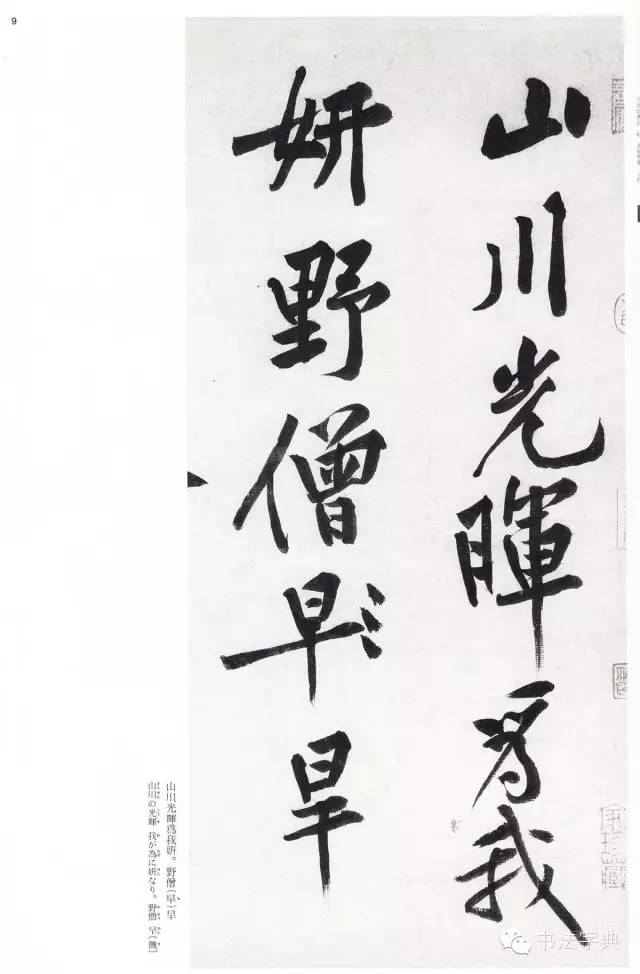 9
山川光暉為我
妍野僧早旱
山川光暉爲我妍。野僧(早)旱
山川の光暉 我が為に妍なり。野僧 旱〔饑〕
书法字典